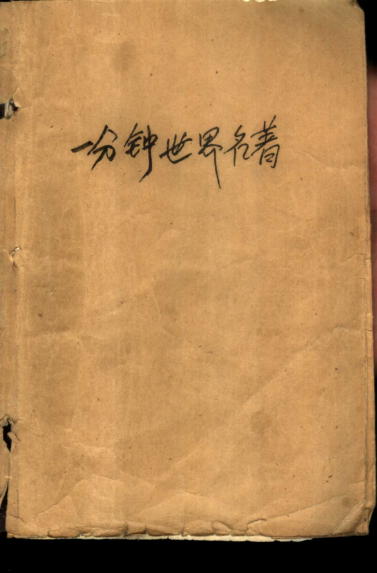 一分钟世界名著